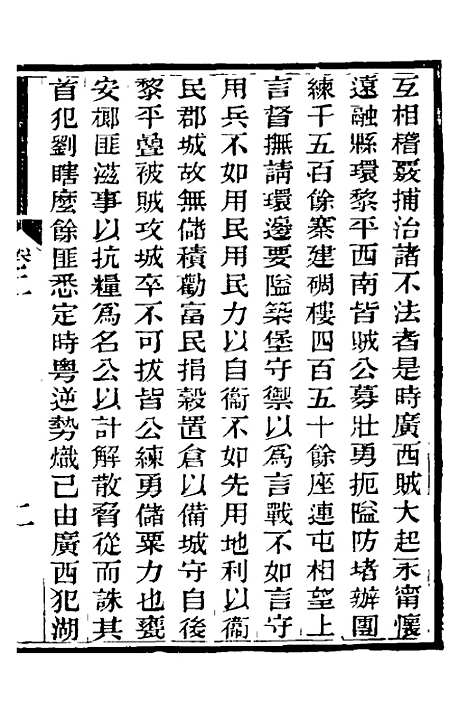 互相稽察捕治諸不法者是時廣西賊大起永甯懷
遠融縣環黎平西南皆賊公募壯勇扼隘防堵辦團
練千五百餘寨建碉樓四百五十餘座連屯相望上
言督撫請環邊要隘築堡守禦以爲言戰不如言守
用兵不如用民用民力以自衞不如先用地利以衞
民郡城故無儲積勸富民捐穀置倉以備城守自後
黎平疊被賊攻城卒不可拔皆公練勇儲粟力也甕
安榔匪滋事以抗糧爲名公以計解散脅從而誅其
首犯劉瞎麼餘匪悉定時粤逆勢熾已由廣西犯湖
卷二
二